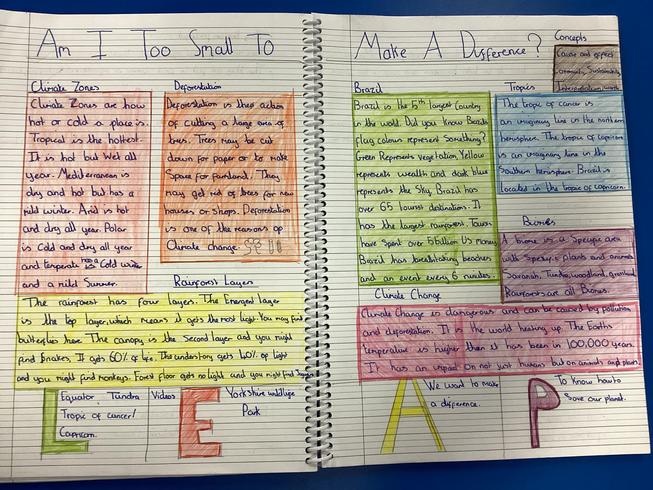 Am I Too Small To Make A Difference?
Concepts
Cause and effect
Interpretation
Climate Zones
Climate Zones are how
hot or cold a place is.
Tropical is the hottest.
It is hot but wet all
year. Mediterranean is
dry and hot but has a
mild winter. Arid is hot
and dry all year. Polar
is cold and dry all year
and temperate has a cold winter
and a mild Summer.
Deforestation
Deforestation is the action
of cutting a large area of
trees. Trees may be cut
down for paper or to make
Space for farmland. They
may get rid of trees for new
houses or shops. Deforestation
is one of the reasons of
Climate change.
Rainforest Layers
The rainforest has four layers. The Emergent layer
is the top layer, which means it gets the most light. You may find
butterflies here. The canopy is the Second layer and you might
find Snakes. It gets 60% of light. The understory gets 40% of light
and you might find monkeys. Forest floor gets no light and you might find
Brazil
Brazil is the 5th largest Country
in the world. Did you know Brazils
flag colours represent Something?
Green Represents Vegetation, Yellow
represents wealth and dark blue
represents the Sky. Brazil has
over 65 tourist destinations. It
has the largest rainforest. Tourists
have Spent over 5 billion US money.
Brazil has breathtaking beaches
and an event every 6 minutes.
Tropics
The tropic of cancer is
an imaginary line in the northern
hemisphere. The tropic of capricorn
is an imaginary line in the
Southern hemisphere. Brazil is
located in the tropic of capricorn.
Biomes
A biome is a Specific area
with Specific plants and animals.
Savanah, Tundra, woodland, grassland
Rainforests are all Biomes.
Climate Change
Climate Change is dangerous and can be caused by pollution
and deforestation. It is the world heating up. The Earths
temperature is higher then it has been in 100,000 years.
It has an impact on not just humans but on animals and plants.
L
Equator Tundra
Tropic of cancer/
Capricorn.
Videos
E
Yorkshire wildlife
Park
A
We want to make
a difference.
P
To know how to
Save our planet.